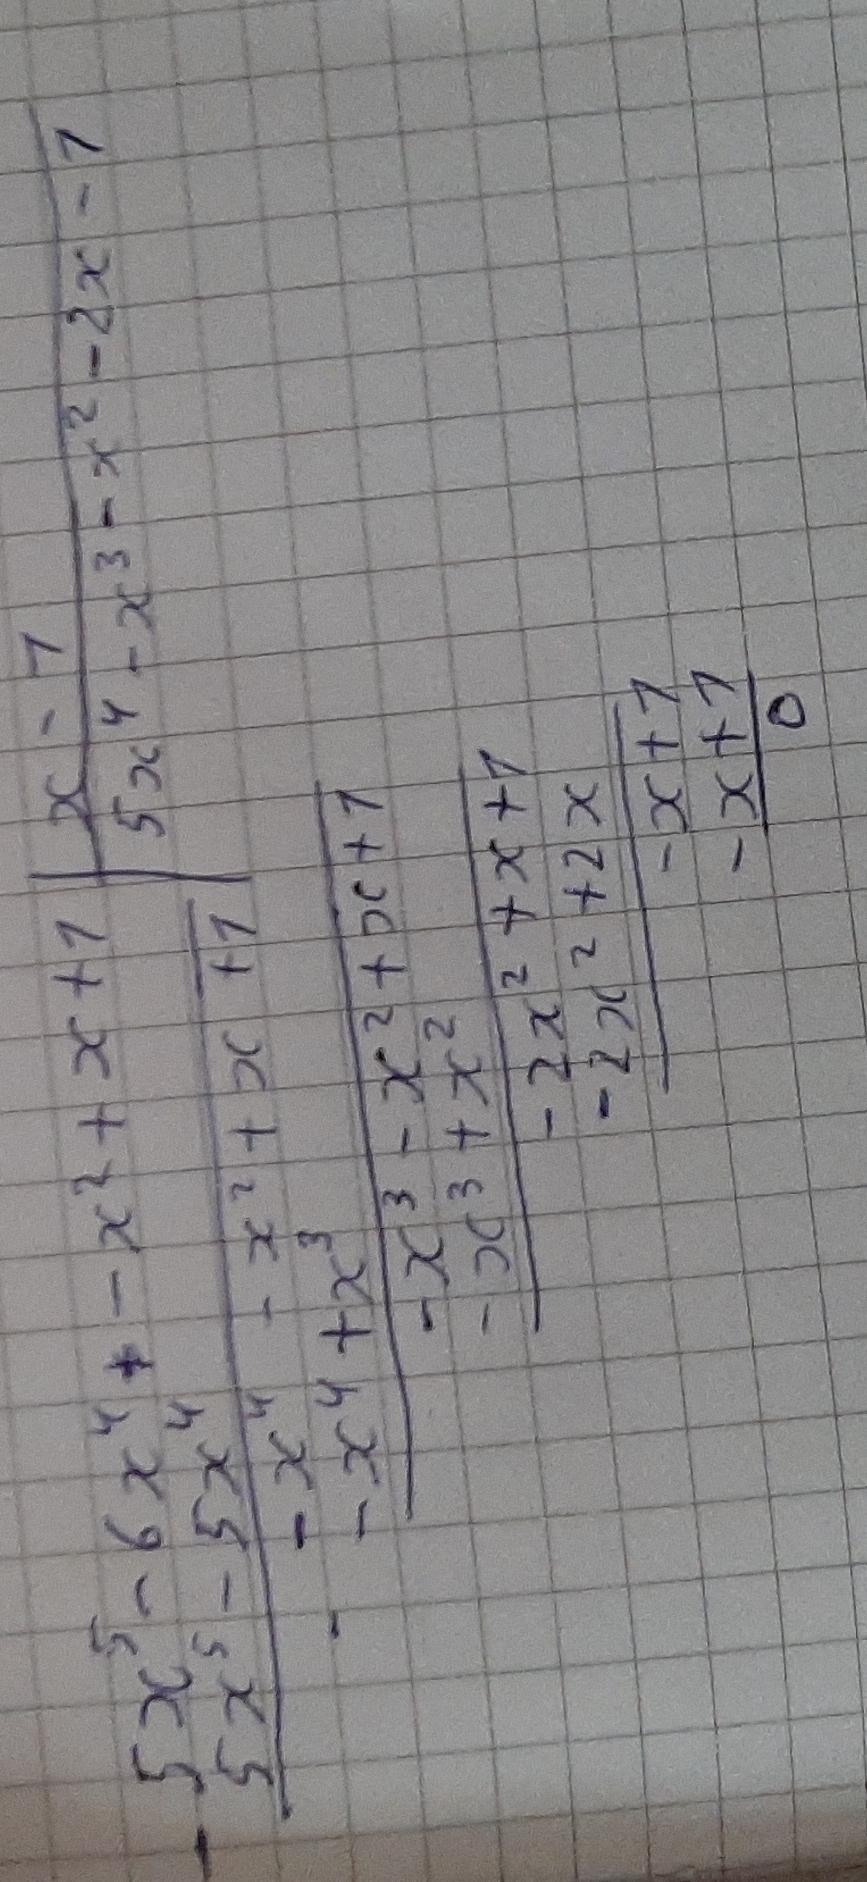 5x⁵ - 6x⁴ + - x² + x + 1 | x - 1
- 5x⁵ - 5x⁴ | 5x⁴ - x³ - x² - 2x - 1
- x⁴ - x² + x + 1
- - x⁴ + x³
- x³ - x² + x + 1
- x³ + x²
- 2x² + x + 1
- 2x² + 2x
- x + 1
- x + 1
0